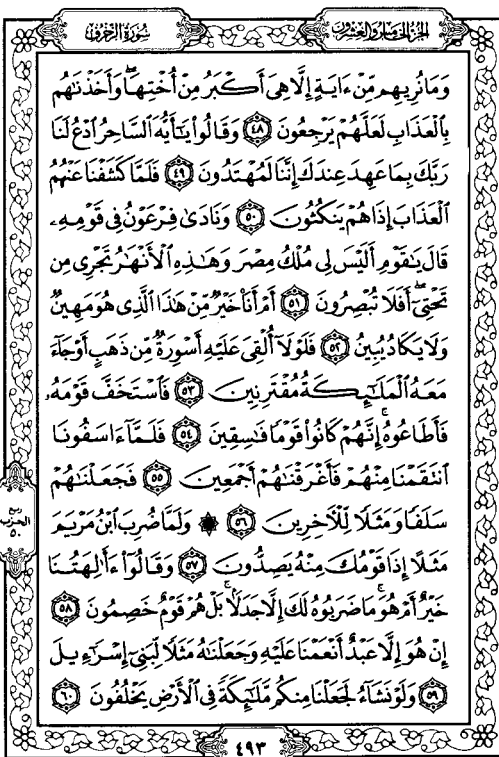 سُورَةُ الزُّخْرُفِ
الجُزْءُ الخَامِسُ وَالعِشْرُونَ
وَمَا نُرِيهِم مِّنْ ءَايَةٍ إِلَّا هِىَ أَكْبَرُ مِنْ أُخْتِهَا ۖ وَأَخَذْنَٰهُم
بِٱلْعَذَابِ لَعَلَّهُمْ يَرْجِعُونَ ٤٨ وَقَالُوا۟ يَٰٓأَيُّهَ ٱلسَّاحِرُ ٱدْعُ لَنَا
رَبَّكَ بِمَا عَهِدَ عِندَكَ إِنَّنَا لَمُهْتَدُونَ ٤٩ فَلَمَّا كَشَفْنَا عَنْهُمُ
ٱلْعَذَابَ إِذَا هُمْ يَنكُثُونَ ٥٠ وَنَادَىٰ فِرْعَوْنُ فِى قَوْمِهِۦ
قَالَ يَٰقَوْمِ أَلَيْسَ لِى مُلْكُ مِصْرَ وَهَٰذِهِ ٱلْأَنْهَٰرُ تَجْرِى مِن
تَحْتِىٓ ۖ أَفَلَا تُبْصِرُونَ ٥١ أَمْ أَنَا۠ خَيْرٌ مِّنْ هَٰذَا ٱلَّذِى هُوَ مَهِينٌ
وَلَا يَكَادُ يُبِينُ ٥٢ فَلَوْلَآ أُلْقِىَ عَلَيْهِ أَسْوِرَةٌ مِّن ذَهَبٍ أَوْ جَآءَ
مَعَهُ ٱلْمَلَٰٓئِكَةُ مُقْتَرِنِينَ ٥٣ فَٱسْتَخَفَّ قَوْمَهُۥ
فَأَطَاعُوهُ ۚ إِنَّهُمْ كَانُوا۟ قَوْمًا فَٰسِقِينَ ٥٤ فَلَمَّآ ءَاسَفُونَا
ٱنتَقَمْنَا مِنْهُمْ فَأَغْرَقْنَٰهُمْ أَجْمَعِينَ ٥٥ فَجَعَلْنَٰهُمْ
سَلَفًا وَمَثَلًا لِّلْءَاخِرِينَ ٥٦ ۞ وَلَمَّا ضُرِبَ ٱبْنُ مَرْيَمَ
مَثَلًا إِذَا قَوْمُكَ مِنْهُ يَصِدُّونَ ٥٧ وَقَالُوٓا۟ ءَأَٰلِهَتُنَا
خَيْرٌ أَمْ هُوَ ۚ مَا ضَرَبُوهُ لَكَ إِلَّا جَدَلًۢا ۚ بَلْ هُمْ قَوْمٌ خَصِمُونَ ٥٨
إِنْ هُوَ إِلَّا عَبْدٌ أَنْعَمْنَا عَلَيْهِ وَجَعَلْنَٰهُ مَثَلًا لِّبَنِىٓ إِسْرَٰٓءِيلَ
٥٩ وَلَوْ نَشَآءُ لَجَعَلْنَا مِنكُم مَّلَٰٓئِكَةً فِى ٱلْأَرْضِ يَخْلُفُونَ ٦٠
ربع
الحزب
٥٠
٤٩٣